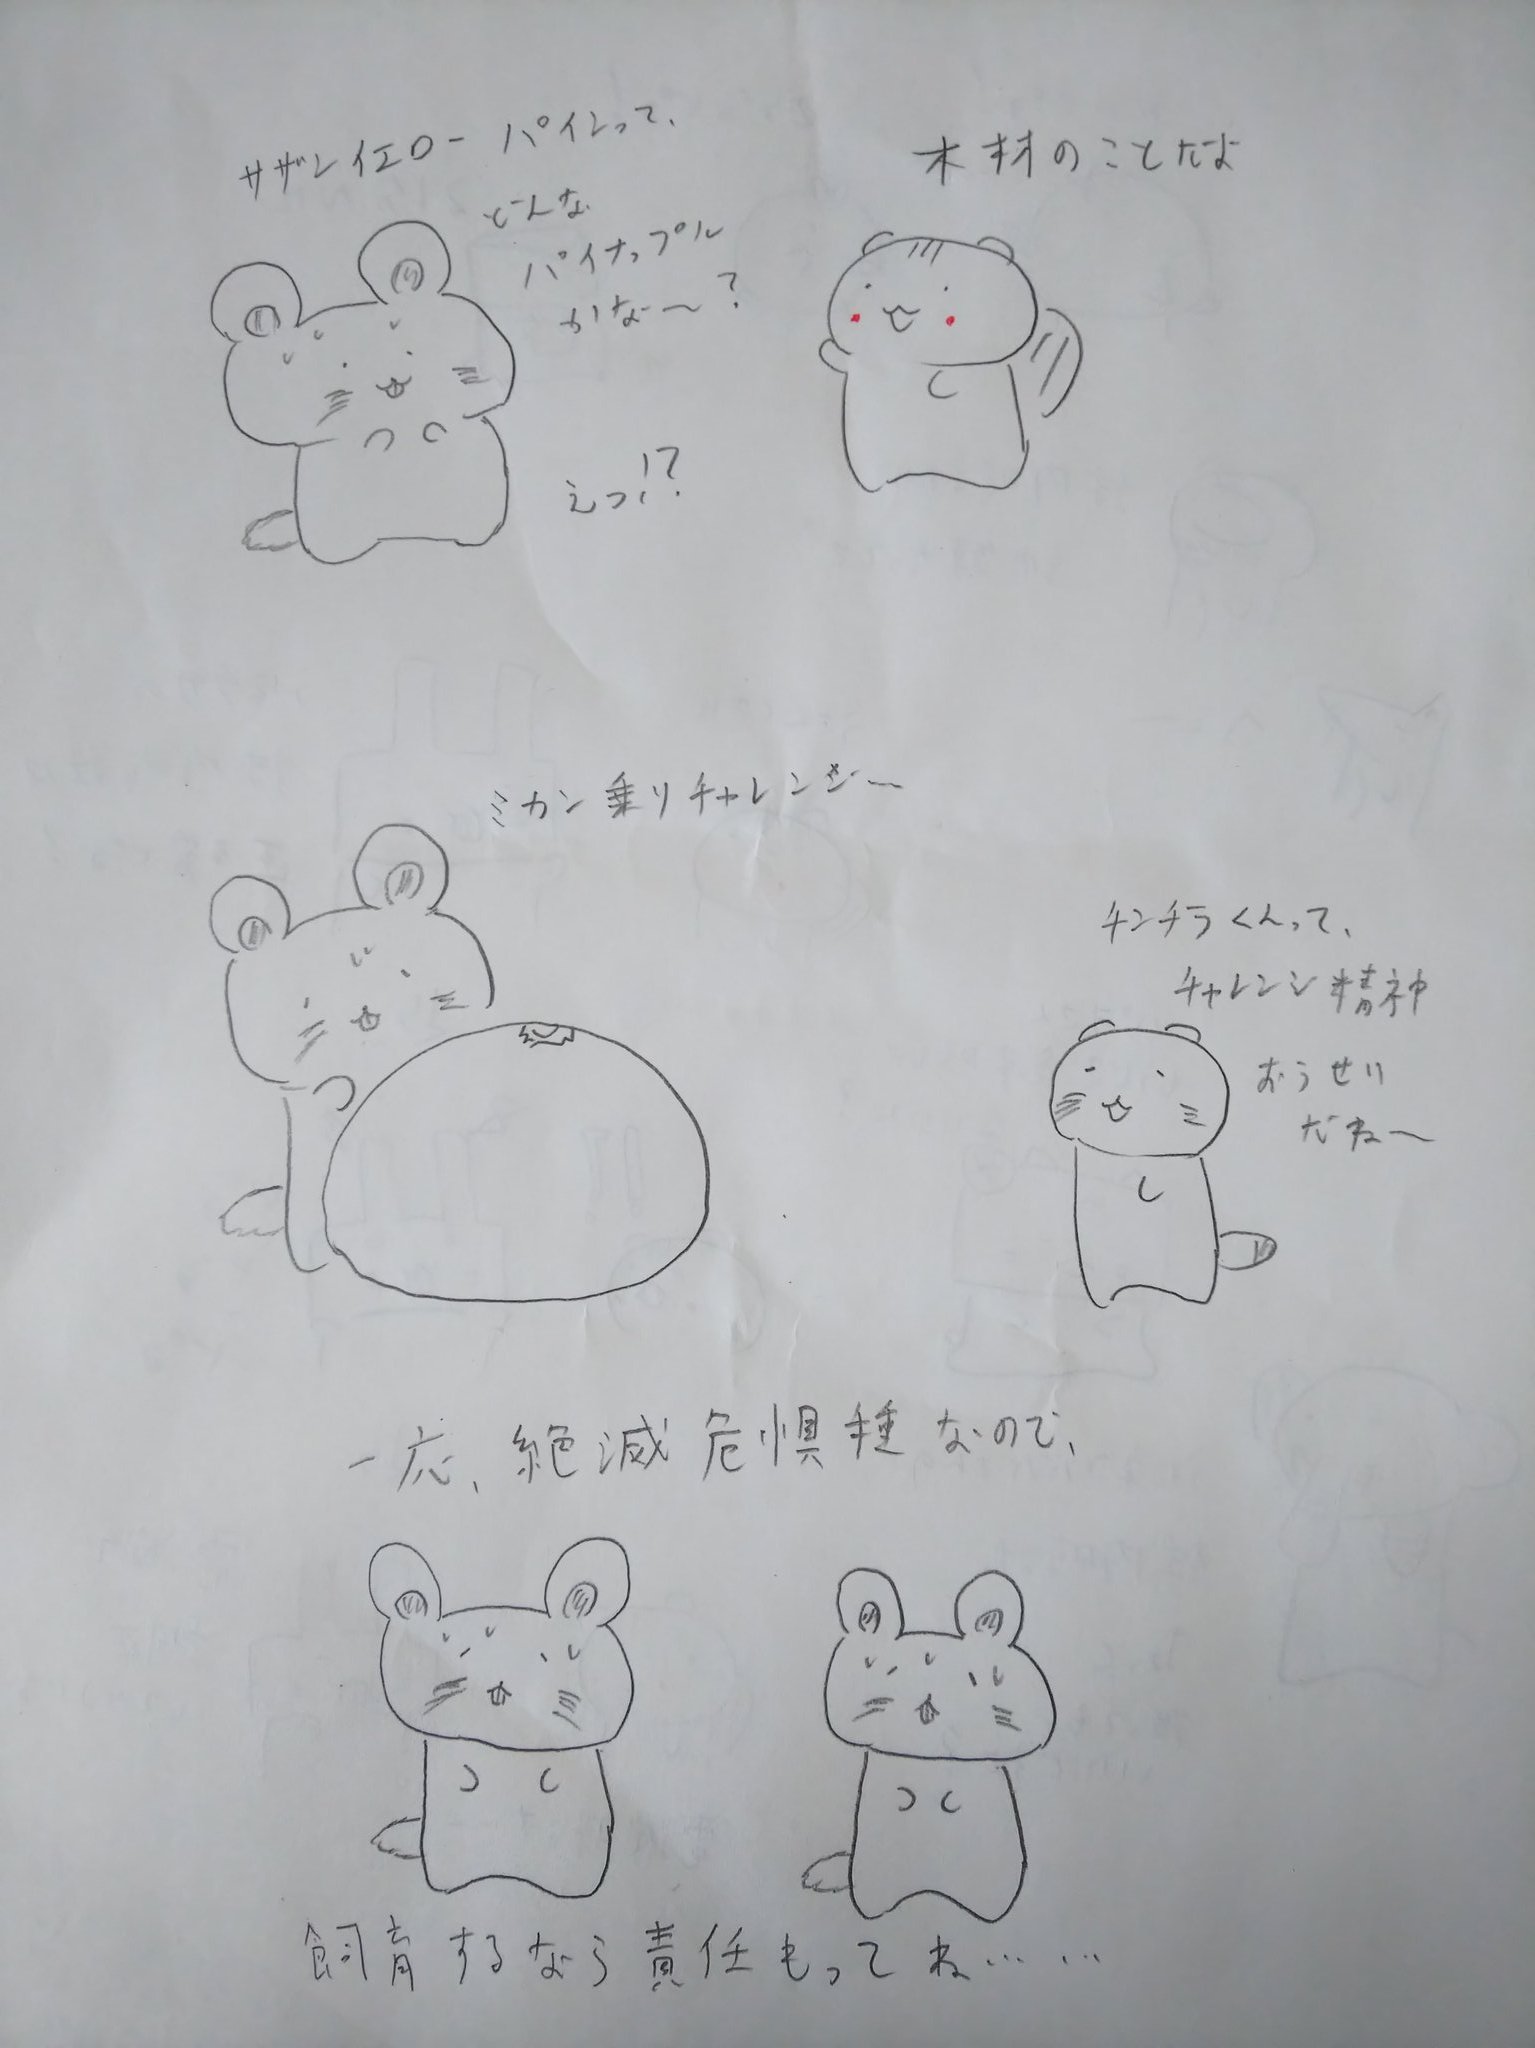 サザンイエローパインって、
どんな
パイナップル
かな〜?
木材のことだよ
えっ!?
ミカン乗りチャレンジ〜
チンチラくんって、
チャレンジ精神
おうせい
だね〜
一応、絶滅危惧種なので、
飼育するなら責任もってね……